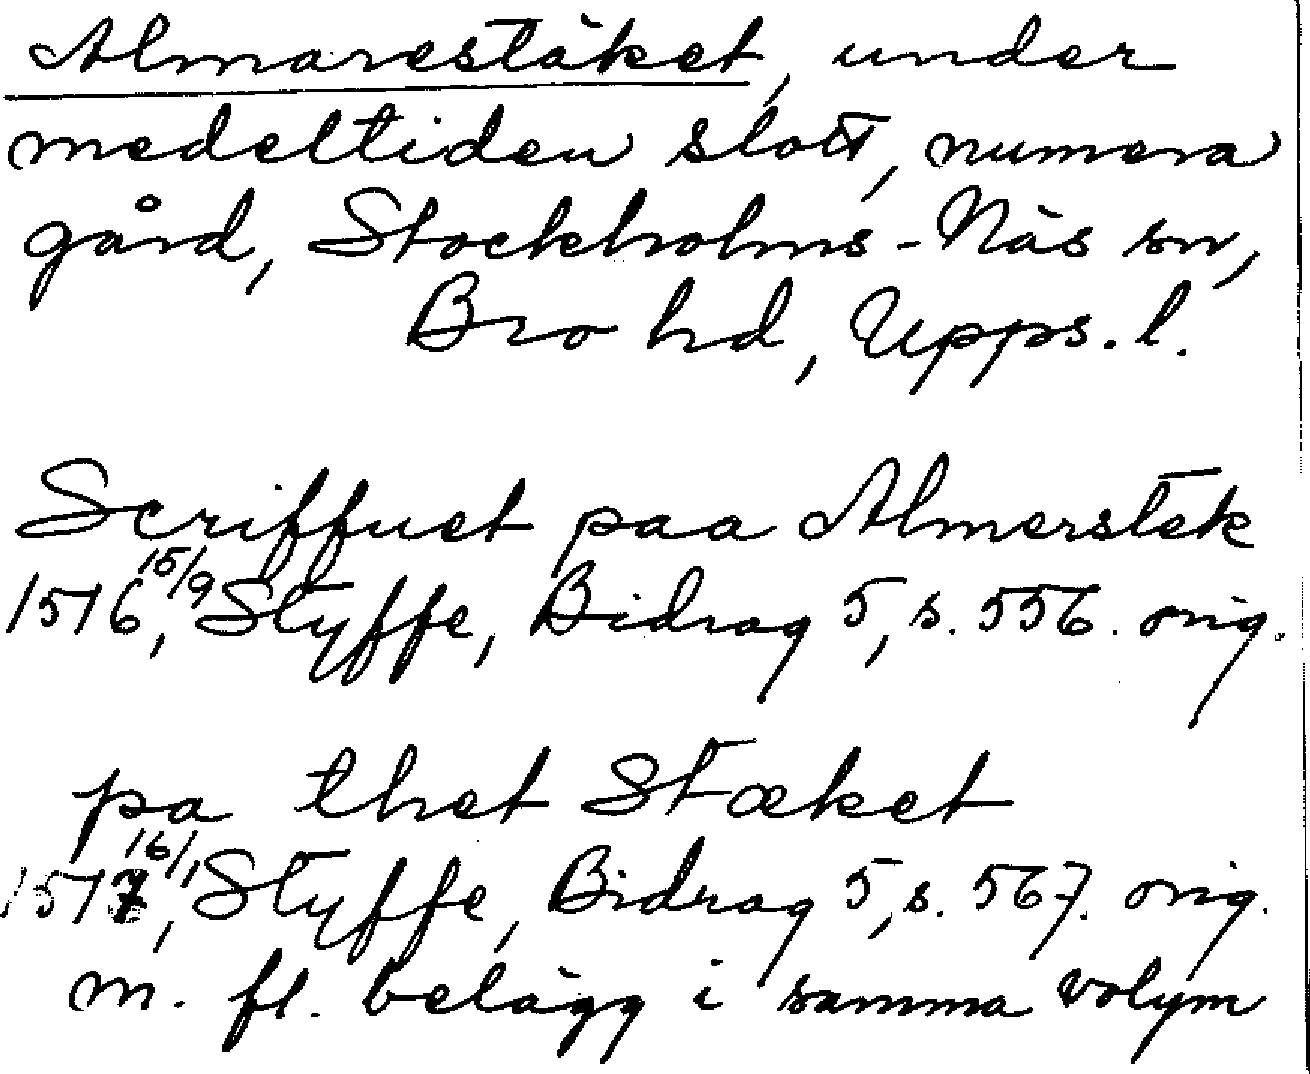 Almarestäket, under
medeltiden slott, numera
gård, Stockholms-Näs sn,
Bro hd, Upps. l.
Scriffuet paa Almerstek
1516 15/9, Styffe, Bidrag 5, s. 556. orig.
pa thet Stæket
1517 16/1, Styffe, Bidrag 5, s. 567. orig.
m. fl. belägg i samma volym